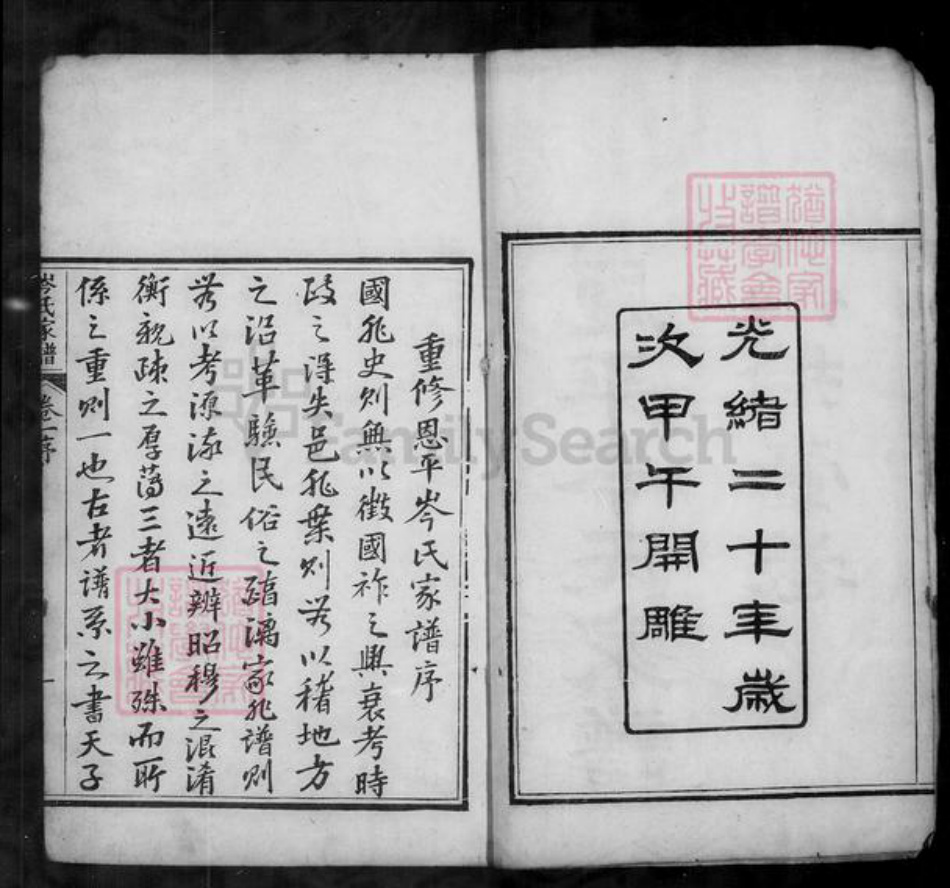 光緒二十年歲
次甲午開雕
重修恩平岑氏家譜序
國非史則無以徵國祚之興衰考時
政之得失邑非乗則無以稽地方
之沿革驗民俗之醇漓家非譜則
無以考源流之遠近辨昭穆之混淆
衡親疎之厚薄三者大小雖殊而所
係之重則一也古者譜系之書天子
岑氏家譜
卷一序
一
FamilySearch